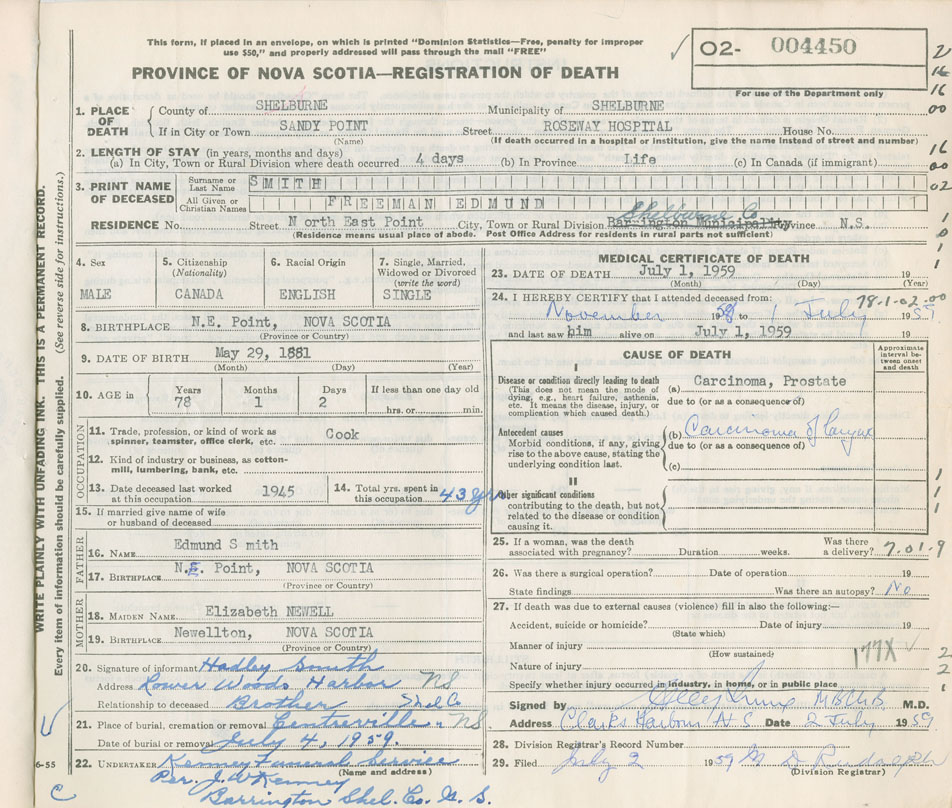 This form, if placed in an envelope, on which is printed "Dominion Statistics—Free, penalty for improper
use $50," and properly addressed will pass through the mail "FREE"
O2- 004450
PROVINCE OF NOVA SCOTIA—REGISTRATION OF DEATH
For use of the Department only
WRITE PLAINLY WITH UNFADING INK. THIS IS A PERMANENT RECORD.
Every item of information should be carefully supplied. (See reverse side for instructions.)
1. PLACE OF DEATH County of SHELBURNE Municipality of SHELBURNE
If in City or Town SANDY POINT Street ROSEWAY HOSPITAL House No.
(Name) (If death occurred in a hospital or institution, give the name instead of street and number)
2. LENGTH OF STAY (in years, months and days)
(a) In City, Town or Rural Division where death occurred 4 days (b) In Province Life (c) In Canada (if immigrant)
3. PRINT NAME OF DECEASED Surname or Last Name SMITH
All Given or Christian Names FREEMAN EDMUND
Shelburne Co
RESIDENCE No. Street North East Point City, Town or Rural Division Barrington Municipality Province N.S.
(Residence means usual place of abode. Post Office Address for residents in rural parts not sufficient)
4. Sex MALE
5. Citizenship (Nationality) CANADA
6. Racial Origin ENGLISH
7. Single, Married, Widowed or Divorced (write the word) SINGLE
8. BIRTHPLACE N.E. Point, NOVA SCOTIA
(Province or Country)
9. DATE OF BIRTH May 29, 1881
(Month) (Day) (Year)
10. AGE in Years 78 Months 1 Days 2 If less than one day old hrs. or min.
OCCUPATION
11. Trade, profession, or kind of work as spinner, teamster, office clerk, etc. Cook
12. Kind of industry or business, as cotton-mill, lumbering, bank, etc.
13. Date deceased last worked at this occupation 1945
14. Total yrs. spent in this occupation 43 yrs
15. If married give name of wife or husband of deceased
FATHER
16. NAME Edmund S mith
17. BIRTHPLACE N.E. Point, NOVA SCOTIA
(Province or Country)
MOTHER
18. MAIDEN NAME Elizabeth NEWELL
19. BIRTHPLACE Newellton, NOVA SCOTIA
(Province or Country)
20. Signature of informant Hadley Smith
Address Lower Woods Harbor NS
Relationship to deceased Brother Shel Co
21. Place of burial, cremation or removal Centreville NS
Date of burial or removal July 4, 1959.
22. UNDERTAKER Kenney Funeral Service
(Name and address)
Per. J.W Kenney
Barrington Shel. Co. N. S.
6-55
MEDICAL CERTIFICATE OF DEATH
23. DATE OF DEATH July 1, 1959 19
(Month) (Day) (Year)
24. I HEREBY CERTIFY that I attended deceased from: 78-1-02-00
November 1958 to 1 July 1959
and last saw him alive on July 1, 1959 19
CAUSE OF DEATH
Approximate interval between onset and death
I
Disease or condition directly leading to death
(This does not mean the mode of dying, e.g., heart failure, asthenia, etc. It means the disease, injury, or complication which caused death.)
(a) Carcinoma, Prostate
due to (or as a consequence of)
Antecedent causes
Morbid conditions, if any, giving rise to the above cause, stating the underlying condition last.
(b) Carcinoma of larynx
due to (or as a consequence of)
(c)
II
Other significant conditions
contributing to the death, but not related to the disease or condition causing it.
25. If a woman, was the death associated with pregnancy? Duration weeks. Was there a delivery? 7-01-9
26. Was there a surgical operation? Date of operation 19
State findings Was there an autopsy? No
27. If death was due to external causes (violence) fill in also the following:—
Accident, suicide or homicide? Date of injury 19
(State which)
Manner of injury
(How sustained)
177X
Nature of injury
Specify whether injury occurred in industry, in home, or in public place
Signed by M.B.Ch.B. M.D.
Address Clark's Harbour N.S. Date 2 July 1959
28. Division Registrar's Record Number
29. Filed July 2 1959 M D Rudolph
(Division Registrar)